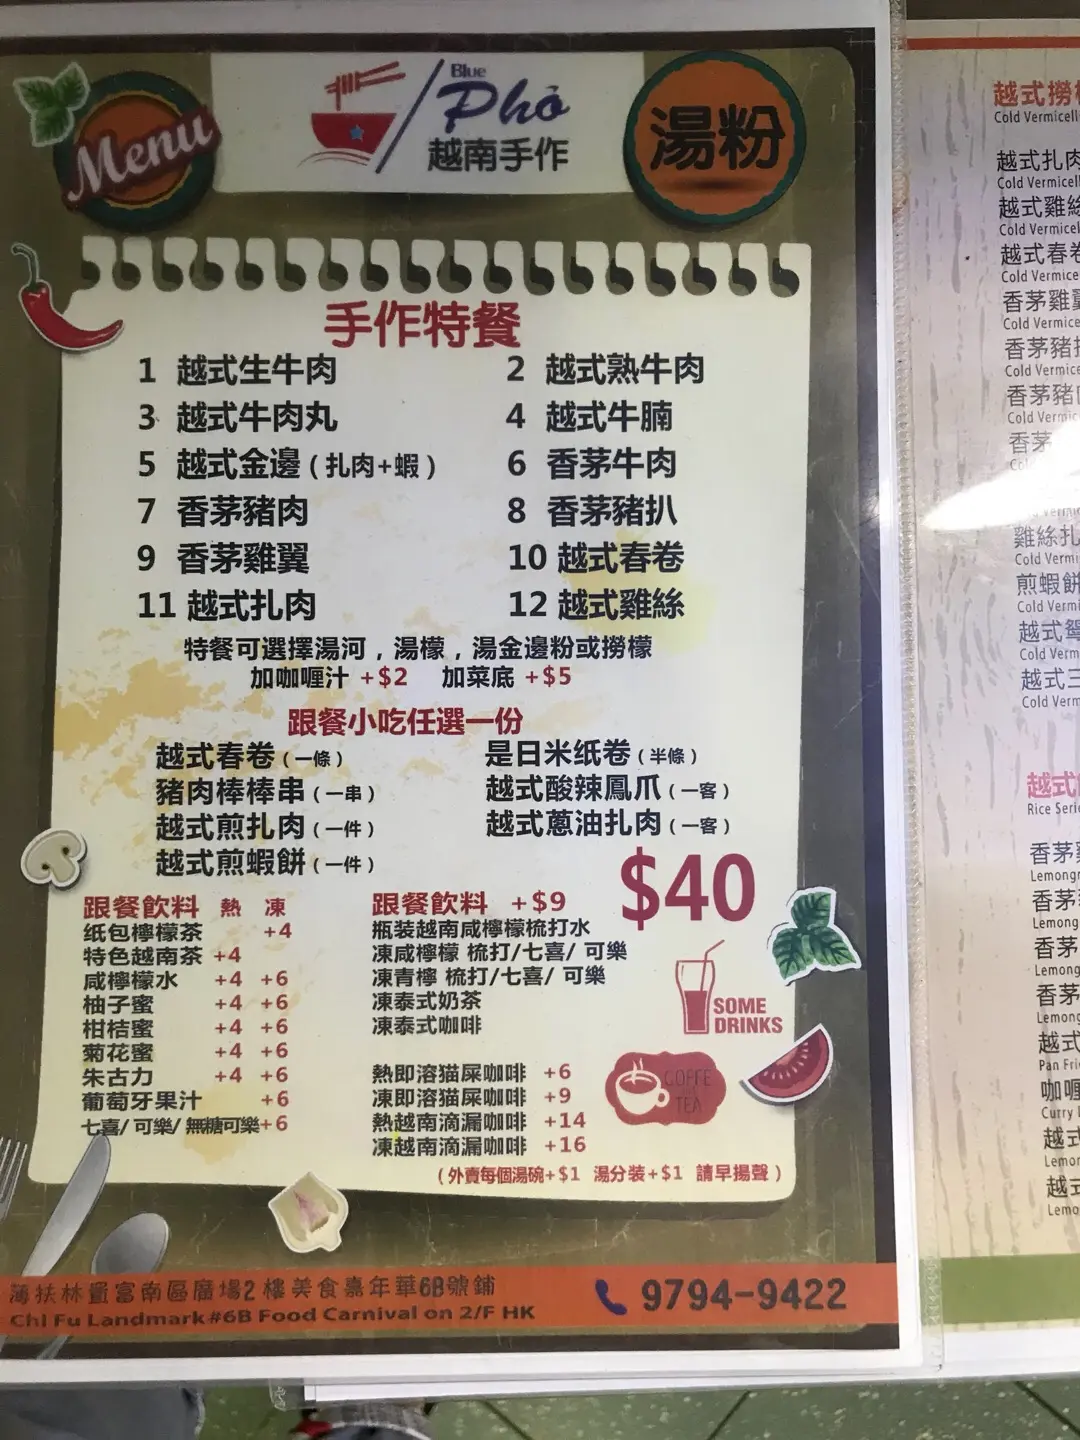 Menu
Blue
Phở
越南手作
湯粉
手作特餐
1 越式生牛肉
2 越式熟牛肉
3 越式牛肉丸
4 越式牛腩
5 越式金邊（扎肉+蝦）
6 香茅牛肉
7 香茅豬肉
8 香茅豬扒
9 香茅雞翼
10 越式春卷
11 越式扎肉
12 越式雞絲
特餐可選擇湯河，湯檬，湯金邊粉或撈檬
加咖喱汁 +$2 加菜底 +$5
跟餐小吃任選一份
越式春卷（一條）
是日米纸卷（半條）
豬肉棒棒串（一串）
越式酸辣鳳爪（一客）
越式煎扎肉（一件）
越式蔥油扎肉（一客）
越式煎蝦餅（一件）
$40
跟餐飲料 熱 凍
纸包檸檬茶 +4
特色越南茶 +4
咸檸檬水 +4 +6
柚子蜜 +4 +6
柑桔蜜 +4 +6
菊花蜜 +4 +6
朱古力 +4 +6
葡萄牙果汁 +6
七喜/ 可樂/ 無糖可樂+6
跟餐飲料 +$9
瓶装越南咸檸檬梳打水
凍咸檸檬 梳打/七喜/ 可樂
凍青檸 梳打/七喜/ 可樂
凍泰式奶茶
凍泰式咖啡
熱即溶猫屎咖啡 +6
凍即溶猫屎咖啡 +9
熱越南滴漏咖啡 +14
凍越南滴漏咖啡 +16
SOME
DRINKS
COFFE
TEA
（外賣每個湯碗+$1 湯分裝+$1 請早揚聲）
薄扶林置富南區廣場2樓美食嘉年華6B號鋪
Chi Fu Landmark#6B Food Carnival on 2/F HK
9794-9422
越式撈檬
Cold Vermicell
越式扎肉
Cold Vermicell
越式雞絲
Cold Vermicel
越式春卷
Cold Vermice
香茅雞翼
Cold Vermice
香茅豬扒
Cold Vermice
香茅豬
Cold Vermic
香茅
雞絲扎
Cold Vermi
煎蝦餅
Cold Vermi
越式
Cold Verm
越式三
Cold Verm
越式
Rice Seri
香茅
Lemongr
香茅
Lemong
香茅
Lemong
香茅
Lemong
越式
Pan Fri
咖喱
Curry
越式
Lemor
越式
Lemo